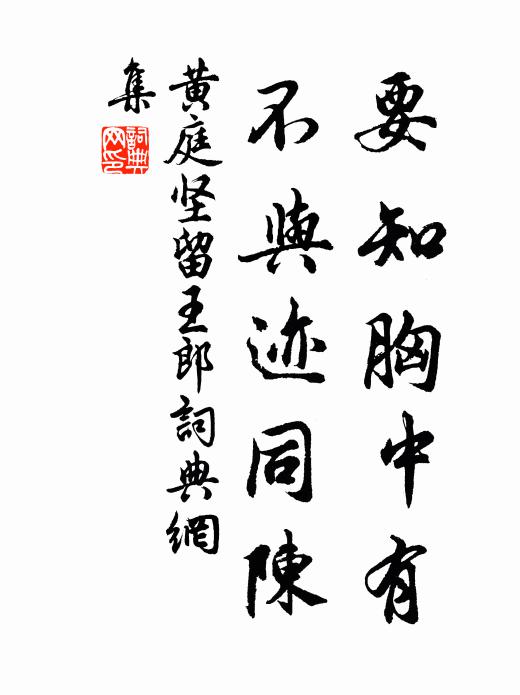 要知胸中有
不與迹同陳
黃庭坚留王郎詞典網
集
詞典
网印